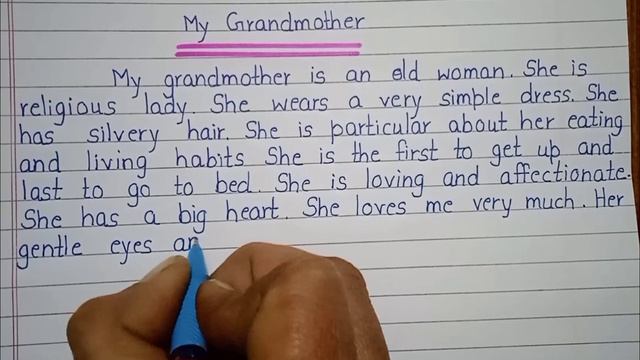 My Grandmother
My grandmother is an old woman. She is
religious lady. She wears a very simple dress. She
has silvery hair. She is particular about her eating
and living habits She is the first to get up and
last to go to bed. She is loving and affectionate.
She has a big heart. She loves me very much. Her
gentle eyes an